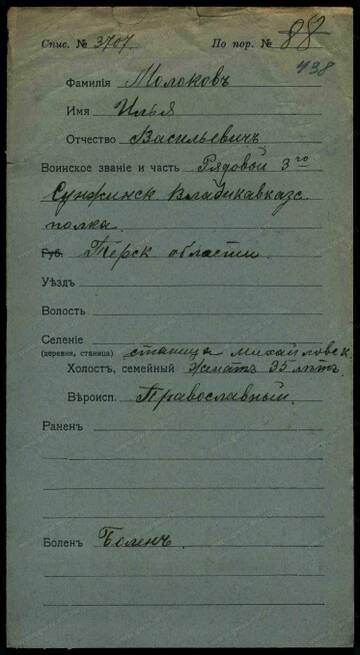 Спис. № 3707 По пор. № 88
438
Фамилія Молоковъ
Имя Илья
Отчество Васильевичъ
Воинское званіе и часть Рядовой 3го
Сунжинск Владикавказс.
полка.
Губ. Терск области
Уѣздъ
Волость
Селеніе
(деревня, станица) станица Михайловск
Холостъ, семейный Женатъ 35 лѣтъ.
Вѣроисп. Православный.
Раненъ
Боленъ Боленъ.